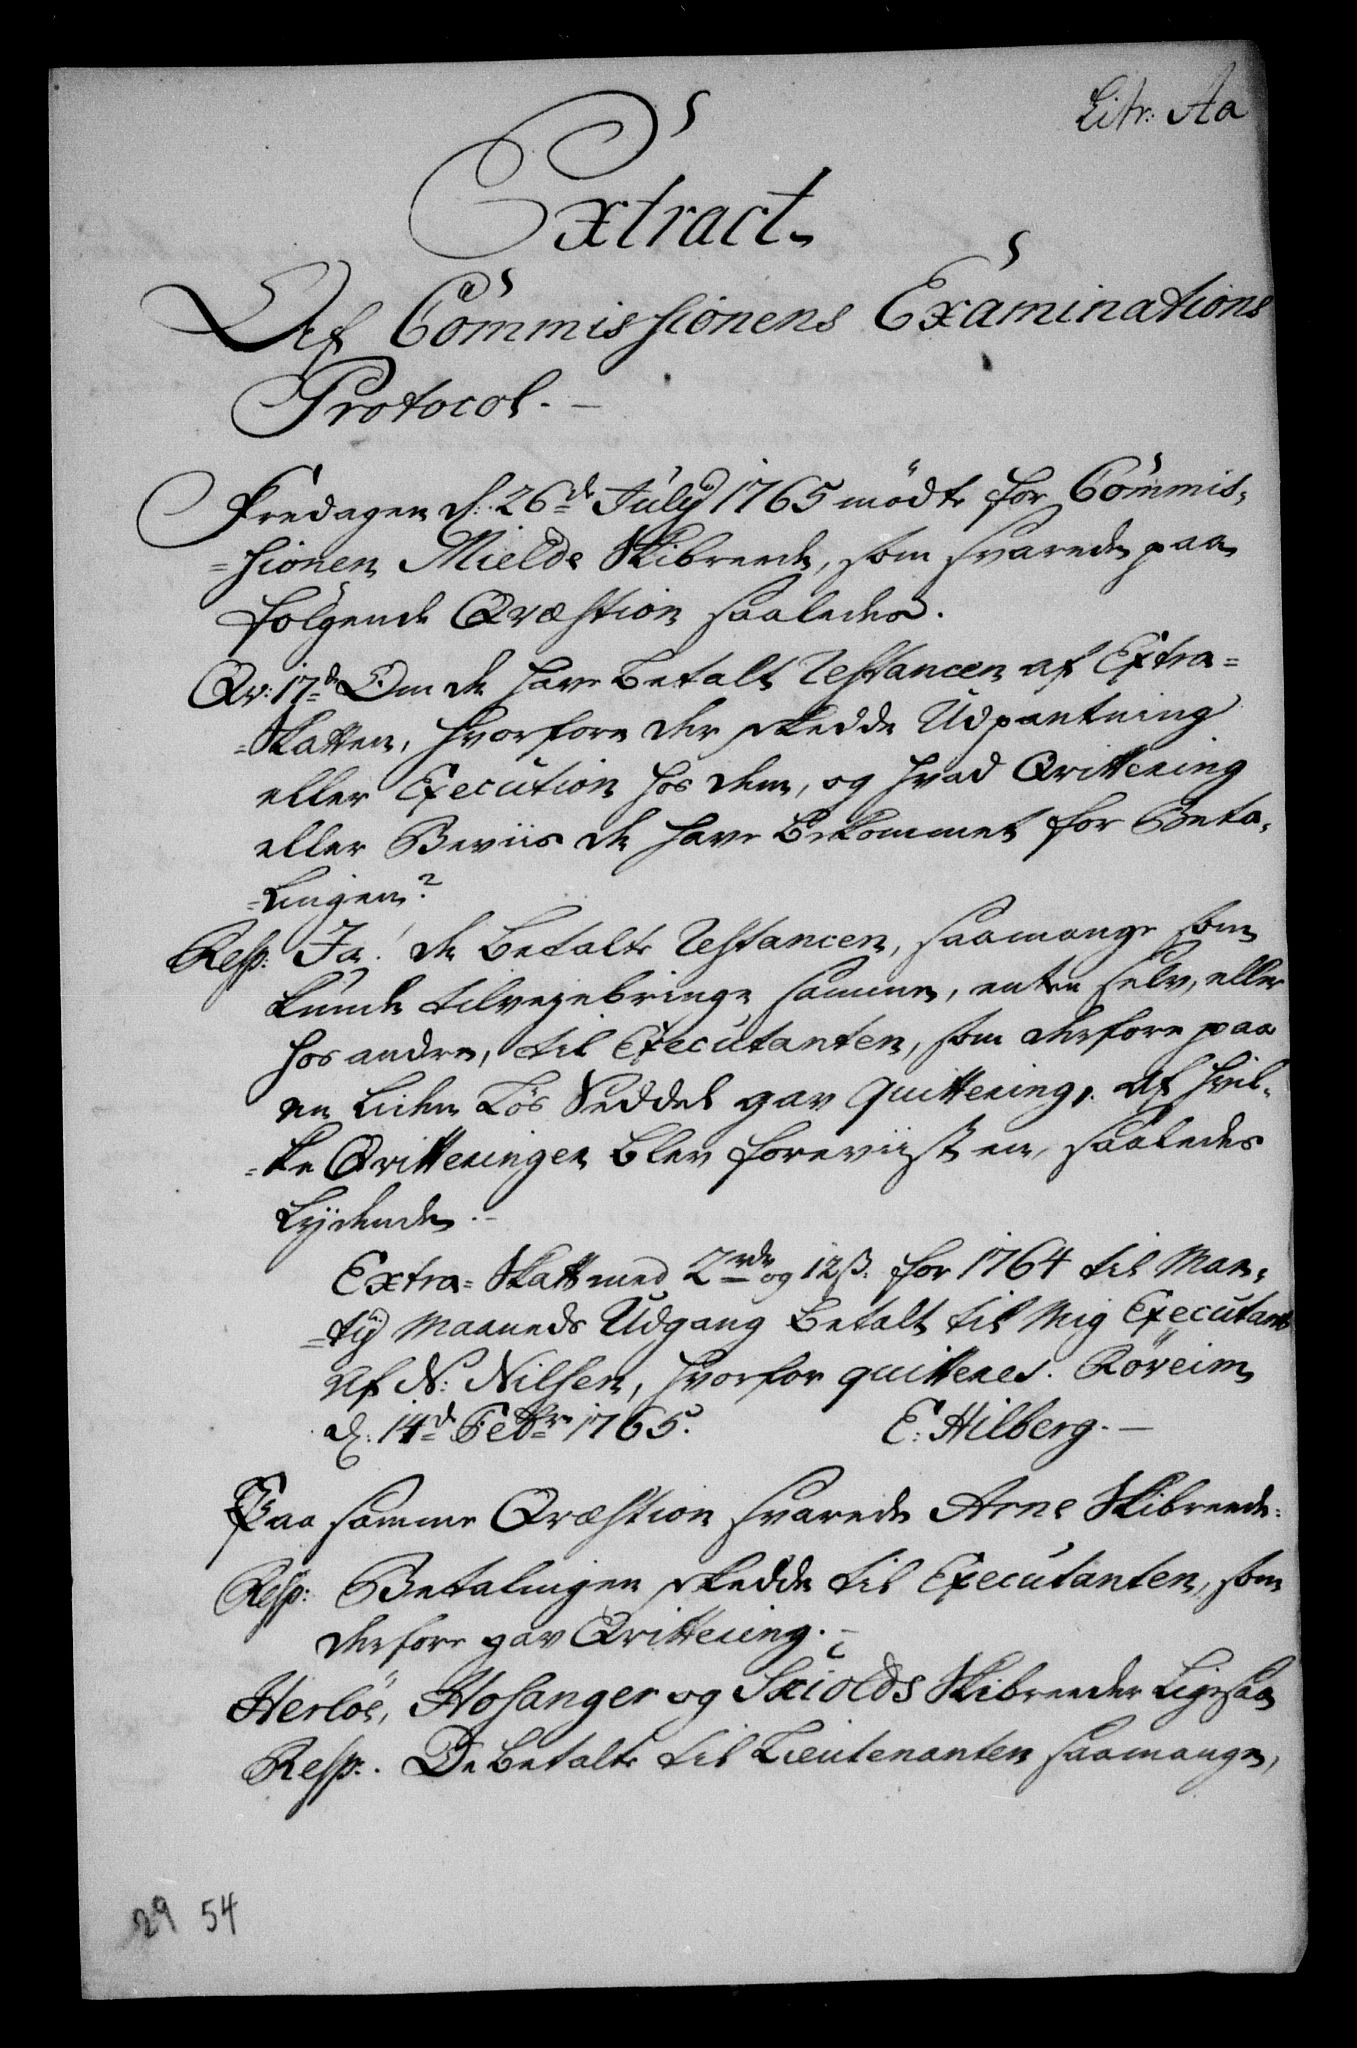 Litr: Aa
Extract
Af Commissionens Examinations
Protocol. -
Fredagen d: 26de July 1765 mödte for Commis-
=sionen Mielde Skibreede, som svarede paa
følgende Qvæstion saaledes.
Qv: 17de Om de have betalt Restancen af Extra=
=Skatten, hvorfore der skedde Udpantning
eller Execution hos dem, og hvad Qvittering
eller Beviis de have bekommet for Beta-
=lingen?
Resp: Ja! de betalte Restancen, saamange som
kunde tilvejebringe samme, enten selv, eller
hos andre, til Executanten, som derfore paa
en liden Løs Seddel gav quittering, af hvil-
=ke Qvitteringer blev foreviist en, saaledes
Lydende. -
Extra= Skatt med 2 rdr og 12 ß. for 1764 til Mar-
=tij Maaneds Udgang betalt til Mig Executant
af N: Nilsen, hvorfor quitteres. Röreim
d. 14d Febr 1765. E: Hilberg. -
Paa samme Qvæstion svarede Arne Skibreede.
Resp: Betalingen skedde til Executanten, som
derfore gav Qvittering. -
Herlöe, Hosanger og Skiolds Skibreeder ligesaa
Resp:. De betalte til Lieutenanten saamange,
29 54